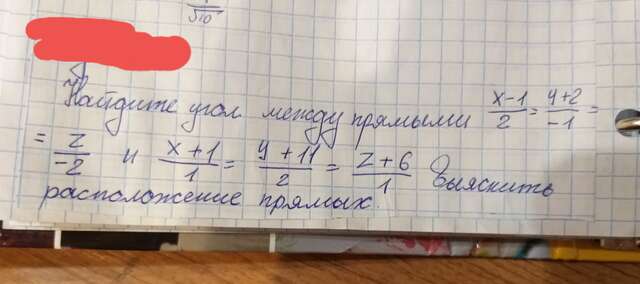 1/√10
Найдите угол между прямыми (x-1)/2 = (y+2)/-1 =
= z/-2 и (x+1)/1 = (y+11)/2 = (z+6)/1 Выяснить
расположение прямых.